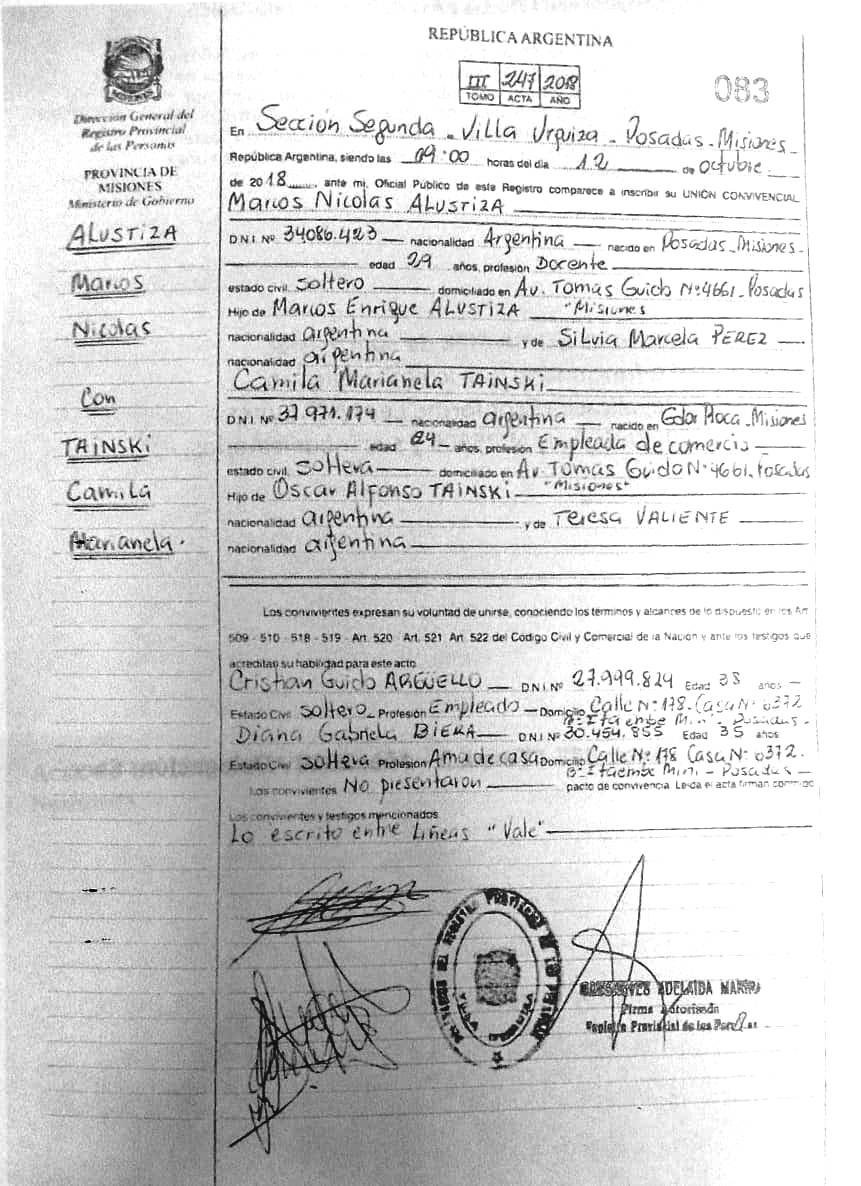 REPÚBLICA ARGENTINA
III 247 2018
TOMO ACTA AÑO
083
MISIONES
Dirección General del
Registro Provincial
de las Personas
PROVINCIA DE
MISIONES
Ministerio de Gobierno
ALUSTIZA
Marcos
Nicolas
Con
TAINSKI
Camila
Marianela.
En Sección Segunda - Villa Urquiza - Posadas - Misiones -
República Argentina, siendo las 09:00 horas del día 12 de Octubre
de 2018, ante mi, Oficial Público de este Registro comparece a inscribir su UNIÓN CONVIVENCIAL
Marcos Nicolas ALUSTIZA
D.N.I. Nº 34086.423 nacionalidad Argentina nacido en Posadas - Misiones -
edad 29 años, profesión Docente
estado civil soltero domiciliado en Av. Tomas Guido Nº:4661 - Posadas
Hijo de Marcos Enrique ALUSTIZA "Misiones
nacionalidad argentina y de Silvia Marcela PEREZ
nacionalidad argentina
Camila Marianela TAINSKI
D.N.I. Nº 37.971.174 nacionalidad argentina nacido en Gdor Roca - Misiones
edad 24 años, profesión Empleada de comercio
estado civil soltera domiciliado en Av. Tomas Guido Nº 4661. Posadas
Hijo de Oscar Alfonso TAINSKI "Misiones"
nacionalidad argentina y de Teresa VALIENTE
nacionalidad argentina
Los convivientes expresan su voluntad de unirse, conociendo los términos y alcances de lo dispuesto en los Art
509 - 510 - 518 - 519 - Art. 520 - Art. 521 Art. 522 del Código Civil y Comercial de la Nación y ante los testigos que
acreditan su habilidad para este acto
Cristian Guido ARGÜELLO D.N.I. Nº 27.999.824 Edad 38 años
Estado Civil soltero Profesión Empleado Domicilio Calle Nº:178. Casa Nº 0372
Bº: Itaembe Mini - Posadas -
Diana Gabriela BIERA D.N.I. Nº 30.454.855 Edad 35 años
Estado Civil soltera Profesión Ama de casa Domicilio Calle Nº: 178 Casa Nº: 0372.
Bº Itaembe Mini - Posadas -
Los convivientes No presentaron pacto de convivencia. Leída el acta firman conmigo
Los convivientes y testigos mencionados
Lo escrito entre Lineas "Vale"
ADELAIDA
Firma Autorizada
Registro Provincial de las Personas